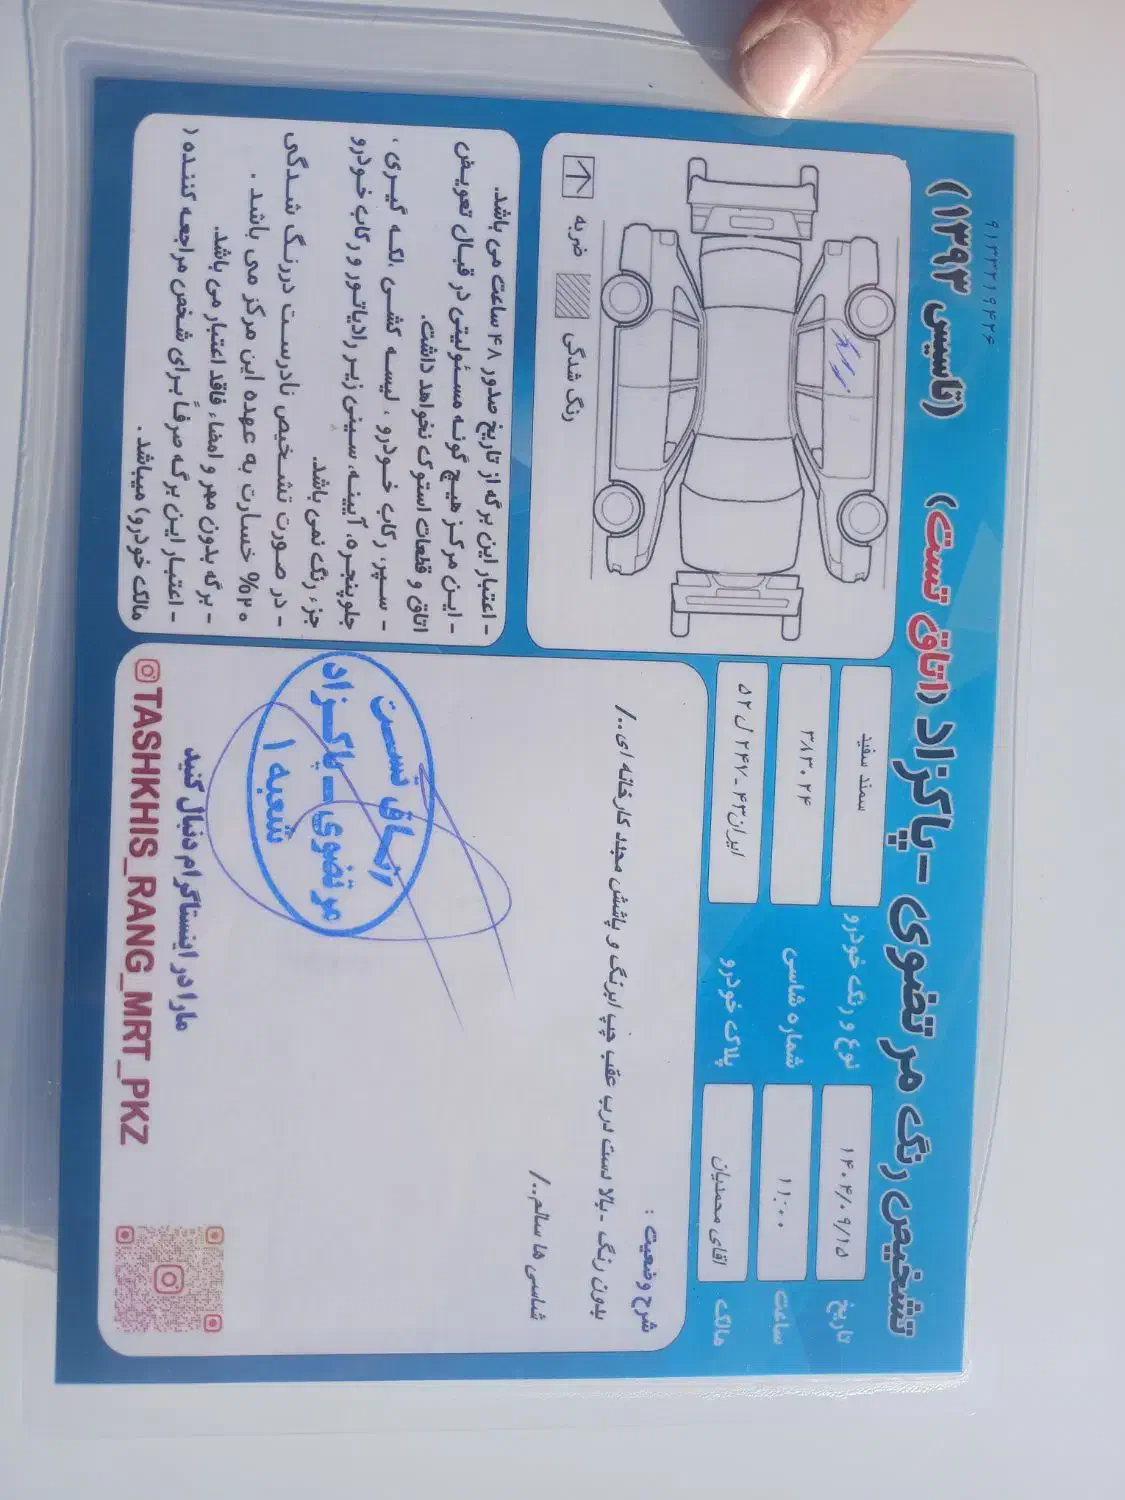 تشخیص رنگ مرتضوی - پاکزاد (اتاق تست) (تاسیس ۱۳۹۳)
۹۱۳۲۲۱۹۴۲۶
تاریخ ۱۴۰۴/۰۹/۱۵
نوع و رنگ خودرو سمند سفید
ساعت ۱۱:۰۰
شماره شاسی ۳۸۳۰۲۴
مالک اقای محمدیان
پلاک خودرو ایران۴۳-۲۴۷ ل ۵۲
شرح وضعیت :
بدون رنگ -بالا دست درب عقب چپ ابرنگ و پاشش مجدد کارخانه ای../
شاسی ها سالم../
ضربه
رنگ شدگی
- اعتبار این برگه از تاریخ صدور ۴۸ ساعت می باشد.
- این مرکز هیچ گونه مسئولیتی در قبال تعویض
اتاق و قطعات استوک نخواهد داشت.
- سپر، رکاب خودرو ، لیسه کشی ،لکه گیری ،
جلوپنجره، آیینه، سینی زیر رادیاتور و رکاب خودرو
جزء رنگ نمی باشد.
- در صورت تشخیص نادرست دررنگ شدگی
۲۰% خسارت به عهده این مرکز می باشد .
- برگه بدون مهر و امضاء فاقد اعتبار می باشد.
- اعتبار این برگه صرفاً برای شخص مراجعه کننده (
مالک خودرو) میباشد .
اتاق تست
مرتضوی - پاکزاد
شعبه ۱
مارا در اینستاگرام دنبال کنید
TASHKHIS_RANG_MRT_PKZ